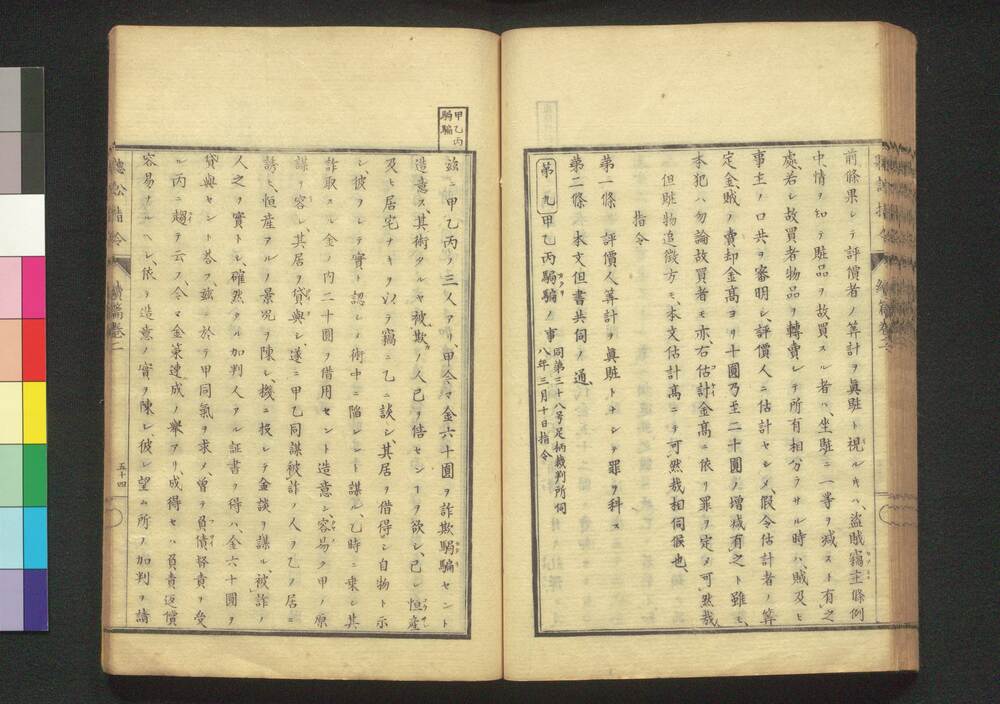 前條果シテ評價者ノ筭計ヲ眞賍ト視ルキハ、盜賊窩主條例
中、情ヲ知テ賍品ヲ故買スル者ハ、坐賍ニ一等ヲ减スト有之
處、若シ故買者物品ヲ轉賣シテ所有相分ラサル時ハ、賊及ヒ
事主ノ口共ヲ審明シ、評價人ニ估計セシメ、假令估計者ノ筭
定金、賊ノ賣却金高ヨリ十圓乃至二十圓ノ増减有之ト雖モ、
本犯ハ勿論故買者モ亦、右估計金高ニ依リ罪ヲ定メ可然哉、
但賍物追徴方モ、本文估計高ニテ可然哉相伺候也、
指令
第一條 評價人筭計ヲ眞賍トナシテ罪ヲ科ス
第二條 本文但書共伺ノ通、
第九 甲乙丙騙騙ノ事 同第三十八号足柄裁判所伺 八年三月十日指令
甲乙丙騙騙
茲ニ甲乙丙ノ三人アリ、甲今マ金六十圓ヲ詐欺騙騙セント
造意ス、其術タルヤ被欺ノ人己ヲ信センヿヲ欲シ、己レ恒産
及ヒ居宅ナキヲ以テ竊ニ乙ニ談シ、其居ヲ借得シ自物ト示
シ、彼ヲシテ實ト認シメ術中ニ陥レント謀ル、乙時ニ乗シ其
詐取スル金ノ内二十圓ヲ借用セント造意シ、容易ク甲ノ原
謀ヲ容レ、其居ヲ貸與シ遂ニ甲乙同謀被詐ノ人ヲ乙ノ居ニ
誘ヒ、恒産アルノ景况ヲ陳シ、機ニ投シテ金談ヲ謀ル、被詐ノ
人之ヲ實トシ、確然タル加判人アル証書ヲ得ハ、金六十圓ヲ
貸與セント荅フ、茲ニ於テ甲同氣ヲ求メ、曾テ負債督責ヲ受
ル丙ニ趨テ云フ、今マ金策速成ノ擧アリ、成得セハ負責返償
容易ナルヘシ、依テ造意ノ實ヲ陳シ、彼レ望ム所ノ加判ヲ請
聽訟指令 續篇卷二 五十四